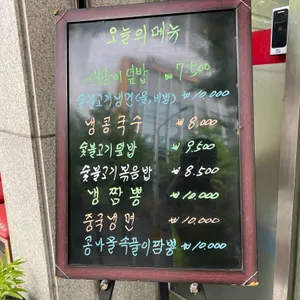 오늘의메뉴
덮밥 ₩7500
숯불고기냉면(물,비빔) ₩10,000
냉콩국수 ₩8,000
숯불고기덮밥 ₩9,500
숯불고기볶음밥 ₩8,500
냉짬뽕 ₩10,000
중국냉면 ₩10,000
콩나물속풀이짬뽕 ₩10,000